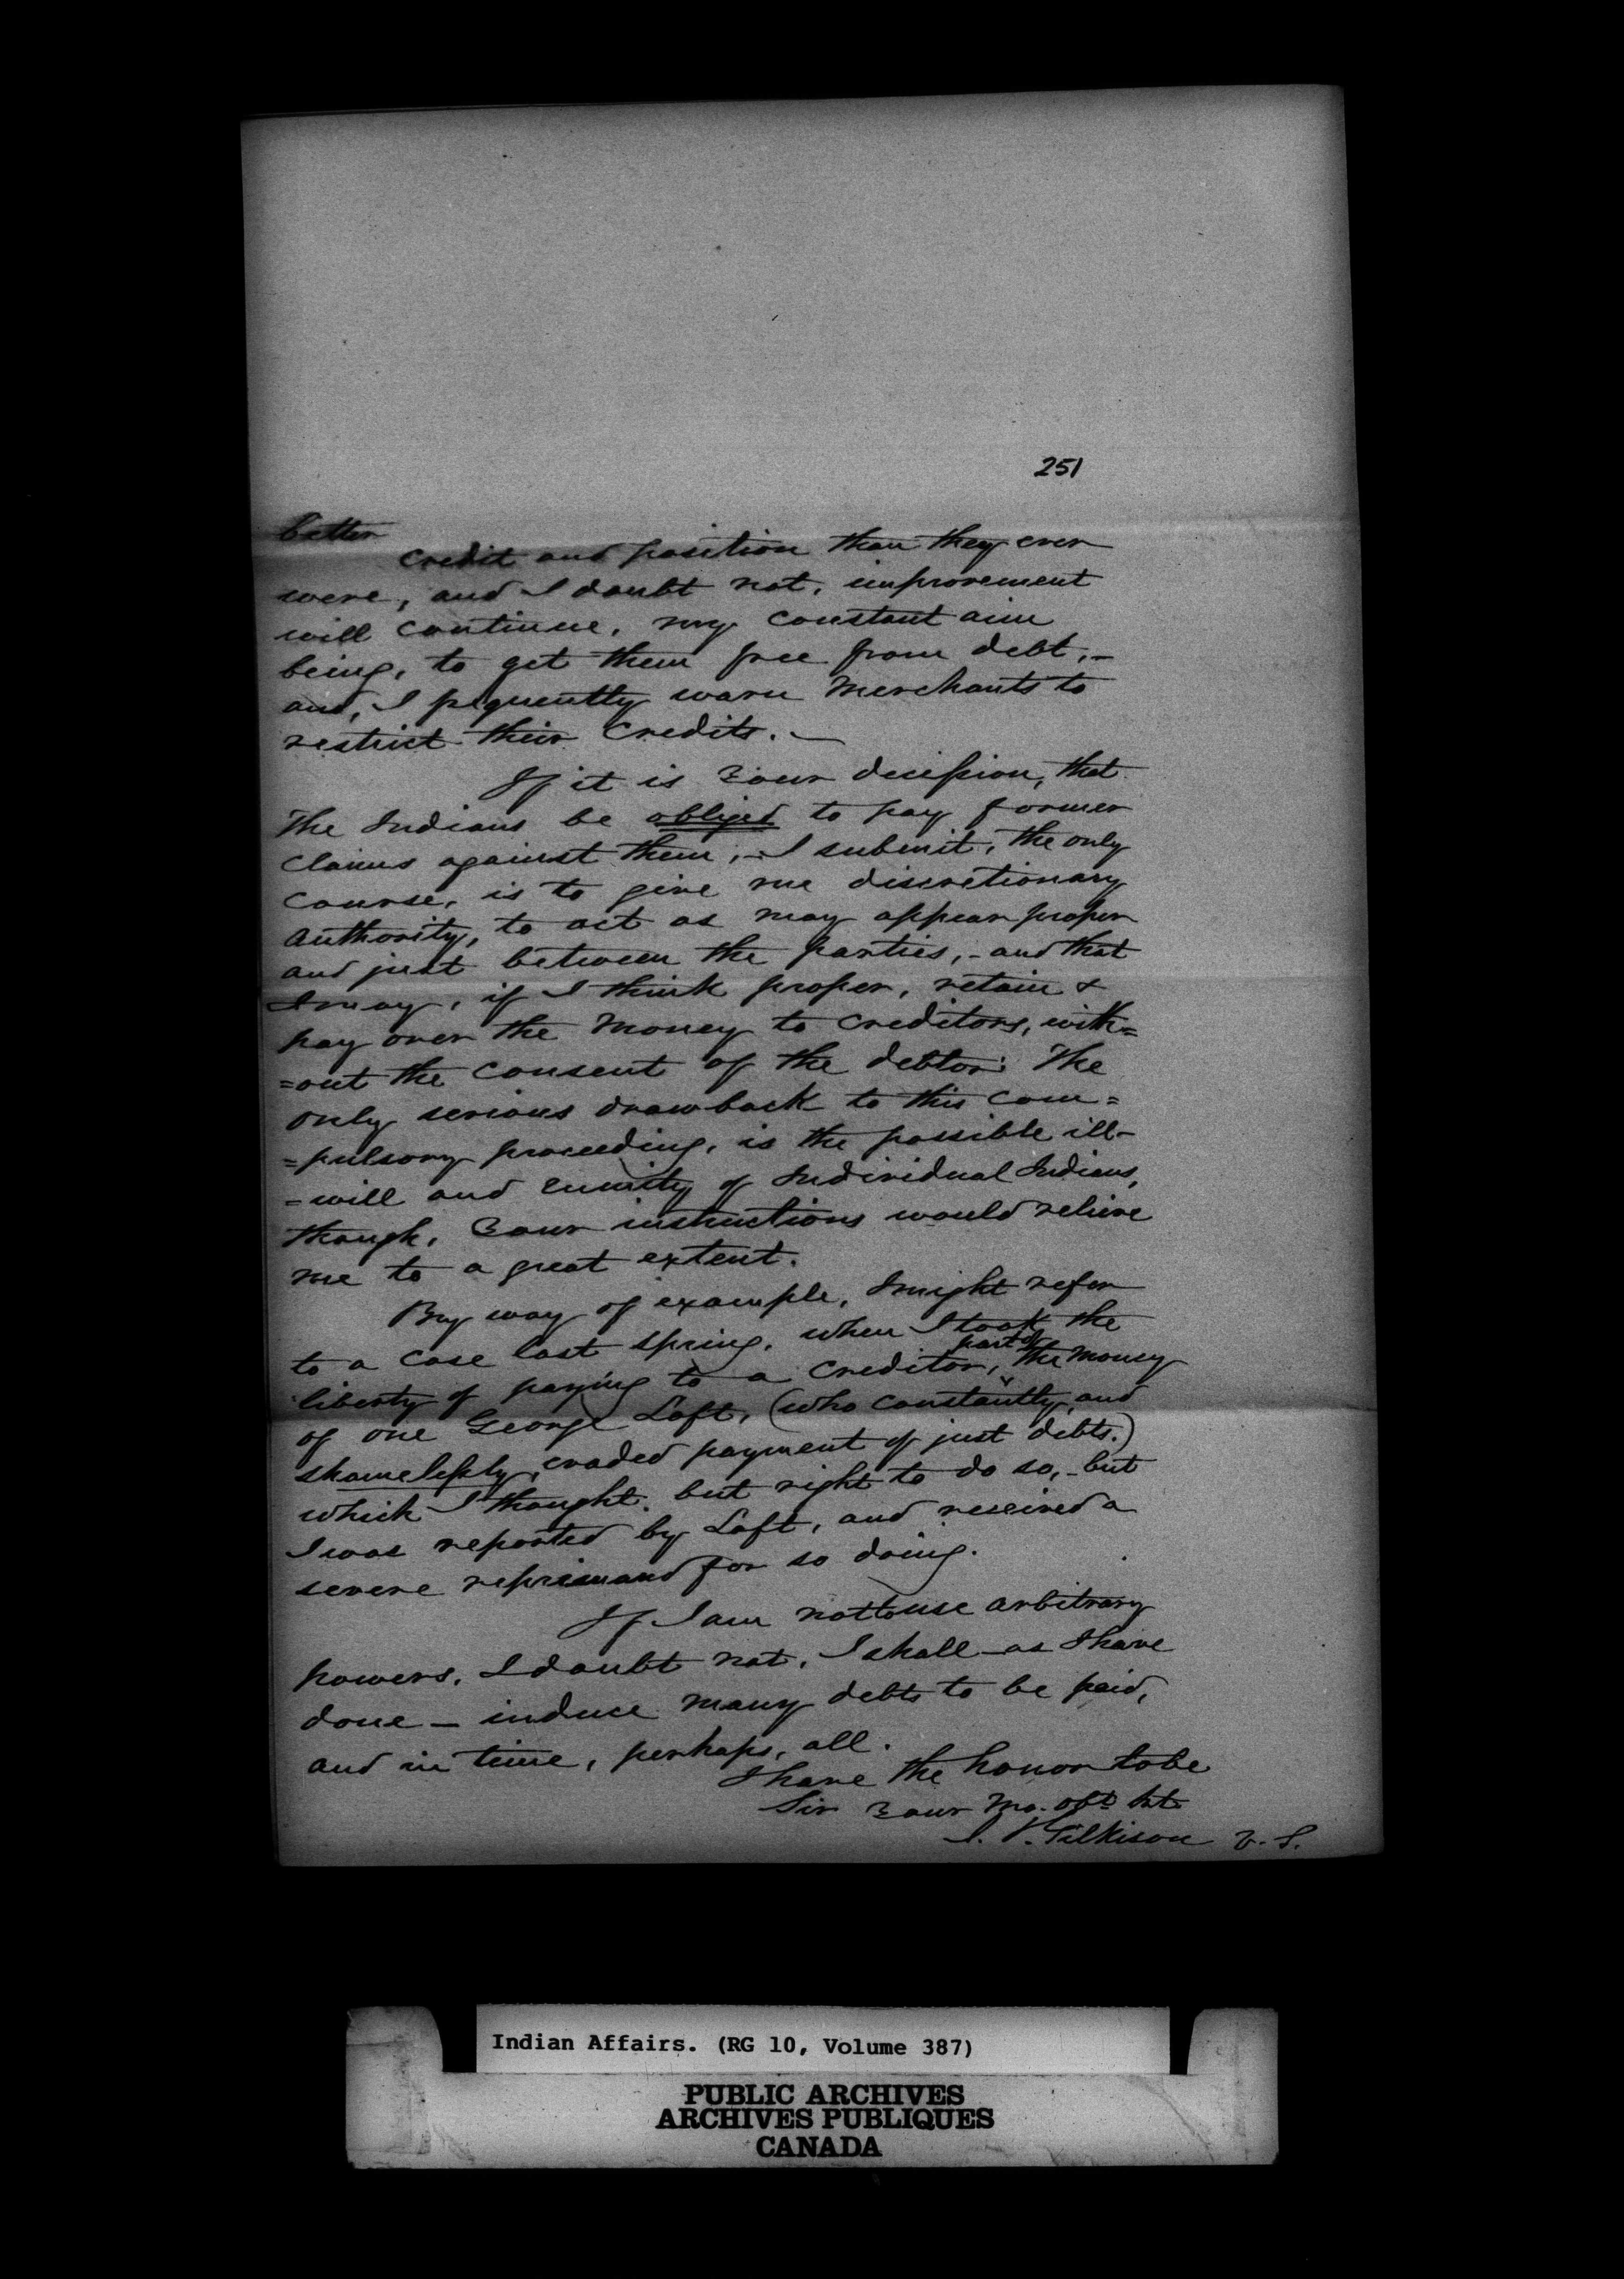 251
better
credit and position than they ever
were, and I doubt not, improvement
will continue, my constant aim
being, to get them free from debt,—
and, I frequently warn Merchants to
restrict their Credits.—
If it is Your decission, that
the Indians be obliged to pay former
claims against them,—I submit, the only
course, is to give me discretionary
authority, to act as may appear proper
and just between the parties,—and that
I may, if I think proper, retain &
pay over the money to Creditors, with=
=out the consent of the debtor: The
only serious drawback to this Com=
=pulsory proceeding, is the possible ill-
=will and enmity of Individual Indians,
though, Your instructions would relieve
me to a great extent.
By way of example, I might refer
to a case last spring, when I took the
liberty of paying to a Creditor, part of the money
of one George Loft, (who constantly, and
shamelessly, evaded payment of just debts.)
which I thought, but right to do so,—but
I was reported by Loft, and received a
severe reprimand for so doing.
If I am not to use arbitrary
powers, I doubt not, I shall—as I have
done—induce many debts to be paid,
and in time, perhaps, all.
I have the honor to be
Sir Your Mo. Obt. Svt.
J. T. Gilkison V. S.
Indian Affairs. (RG 10, Volume 387)
PUBLIC ARCHIVES
ARCHIVES PUBLIQUES
CANADA